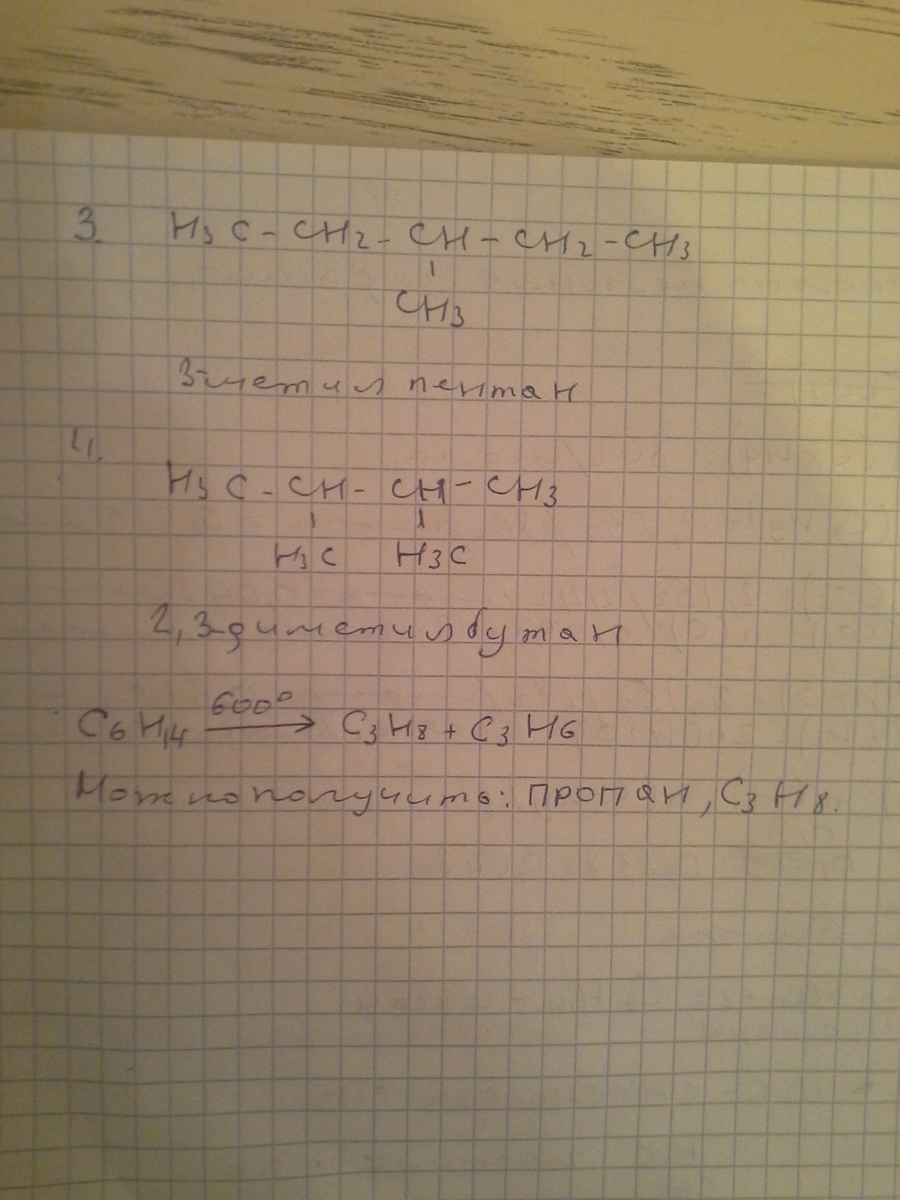 3. H₃C - CH₂ - CH - CH₂ - CH₃
CH₃
3-метилпентан
4.
H₃C - CH - CH - CH₃
H₃C H₃C
2,3-диметилбутан
C₆H₁₄ 600° → C₃H₈ + C₃H₆
Можно получить: ПРОПАН, C₃H₈.